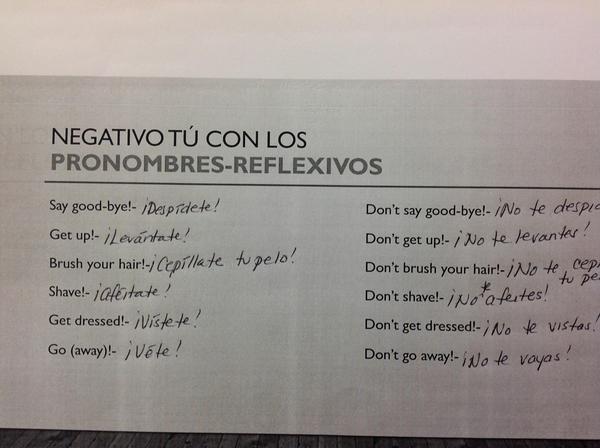 NEGATIVO TÚ CON LOS
PRONOMBRES-REFLEXIVOS
Say good-bye!- ¡Despídete!
Get up!- ¡Levántate!
Brush your hair!- ¡Cepíllate tu pelo!
Shave!- ¡aféitate!
Get dressed!- ¡Vístete!
Go (away)!- ¡Véte!
Don't say good-bye!- ¡No te
Don't get up!- ¡No te levantes!
Don't brush your hair!- ¡No te
tu
Don't shave!- ¡No * afeites!
Don't get dressed!- ¡No te vistas!
Don't go away!- ¡No te vayas!